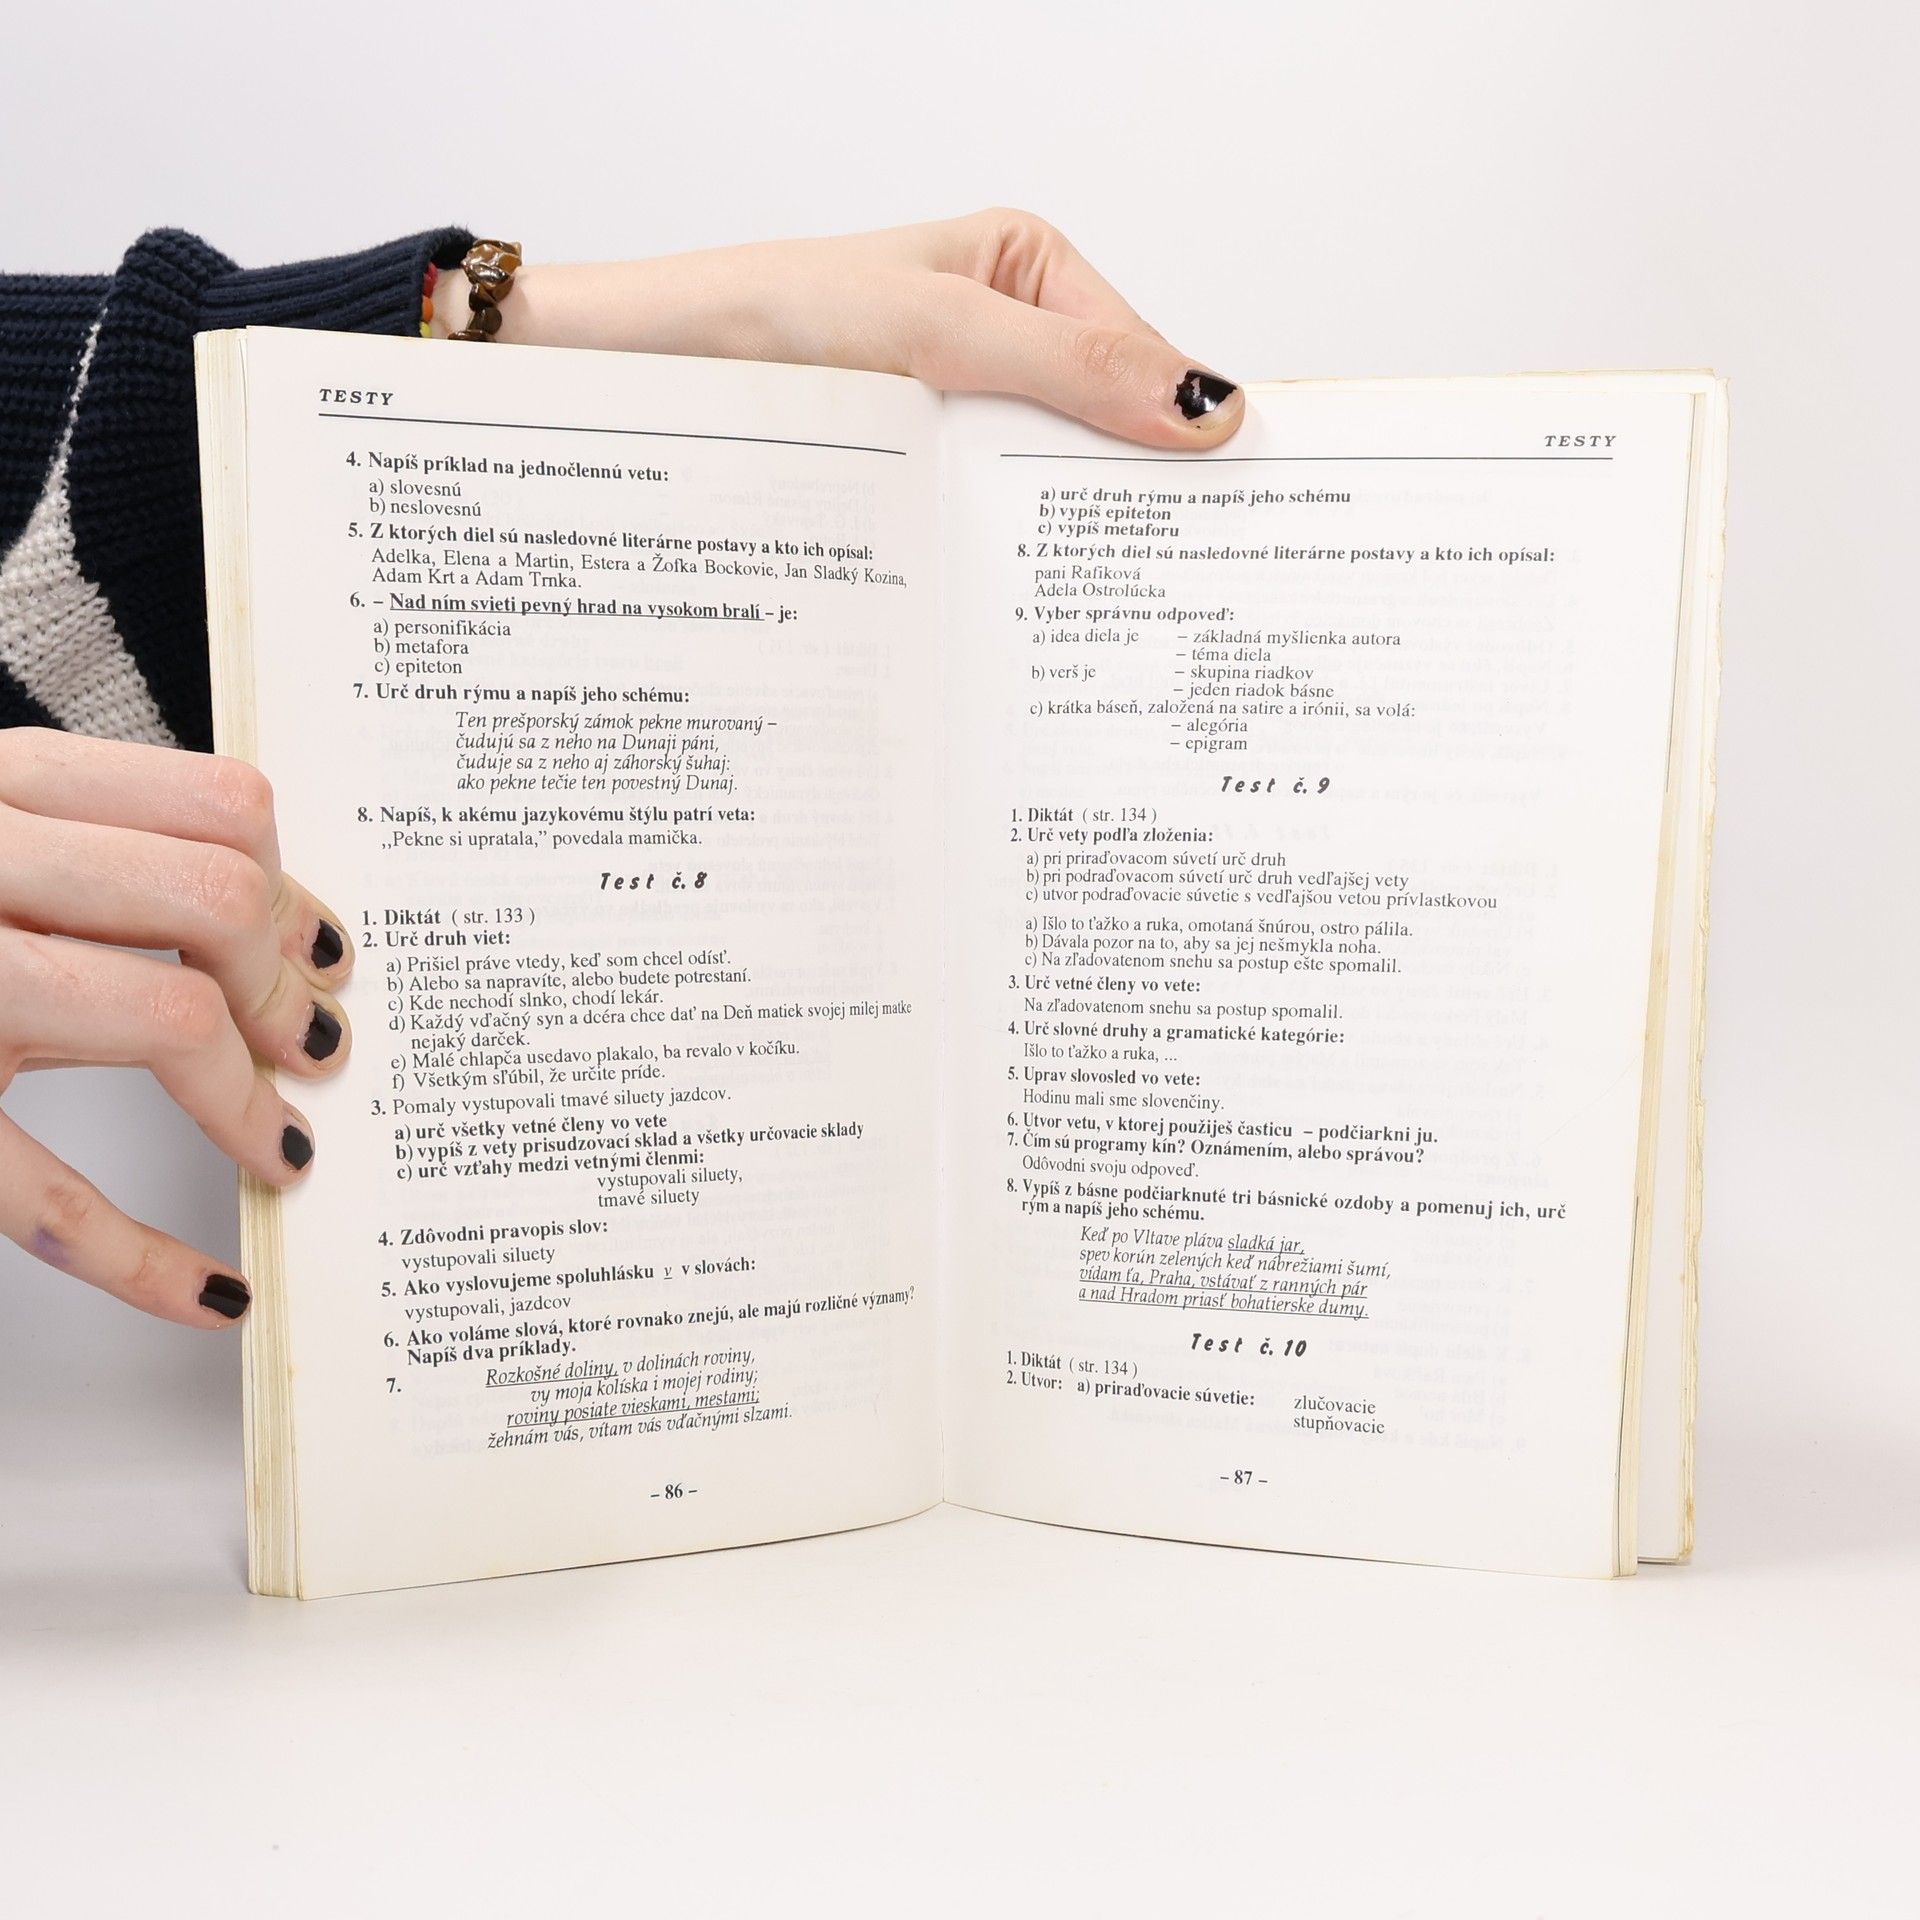 TESTY
4. Napíš príklad na jednočlennú vetu:
a) slovesnú
b) neslovesnú
5. Z ktorých diel sú nasledovné literárne postavy a kto ich opísal:
Adelka, Elena a Martin, Estera a Žofka Bockovie, Jan Sladký Kozina,
Adam Krt a Adam Trnka.
6. – Nad ním svieti pevný hrad na vysokom bralí – je:
a) personifikácia
b) metafora
c) epiteton
7. Urč druh rýmu a napíš jeho schému:
Ten prešporský zámok pekne murovaný –
čudujú sa z neho na Dunaji páni,
čuduje sa z neho aj záhorský šuhaj:
ako pekne tečie ten povestný Dunaj.
8. Napíš, k akému jazykovému štýlu patrí veta:
,,Pekne si upratala,” povedala mamička.
Test č. 8
1. Diktát ( str. 133 )
2. Urč druh viet:
a) Prišiel práve vtedy, keď som chcel odísť.
b) Alebo sa napravíte, alebo budete potrestaní.
c) Kde nechodí slnko, chodí lekár.
d) Každý vďačný syn a dcéra chce dať na Deň matiek svojej milej matke
nejaký darček.
e) Malé chlapča usedavo plakalo, ba revalo v kočíku.
f) Všetkým sľúbil, že určite príde.
3. Pomaly vystupovali tmavé siluety jazdcov.
a) urč všetky vetné členy vo vete
b) vypíš z vety prisudzovací sklad a všetky určovacie sklady
c) urč vzťahy medzi vetnými členmi:
vystupovali siluety,
tmavé siluety
4. Zdôvodni pravopis slov:
vystupovali siluety
5. Ako vyslovujeme spoluhlásku v v slovách:
vystupovali, jazdcov
6. Ako voláme slová, ktoré rovnako znejú, ale majú rozličné významy?
Napíš dva príklady.
7. Rozkošné doliny, v dolinách roviny,
vy moja kolíska i mojej rodiny;
roviny posiate vieskami, mestami;
žehnám vás, vítam vás vďačnými slzami.
– 86 –
TESTY
a) urč druh rýmu a napíš jeho schému
b) vypíš epiteton
c) vypíš metaforu
8. Z ktorých diel sú nasledovné literárne postavy a kto ich opísal:
pani Rafiková
Adela Ostrolúcka
9. Vyber správnu odpoveď:
a) idea diela je – základná myšlienka autora
– téma diela
b) verš je – skupina riadkov
– jeden riadok básne
c) krátka báseň, založená na satire a irónii, sa volá:
– alegória
– epigram
Test č. 9
1. Diktát ( str. 134 )
2. Urč vety podľa zloženia:
a) pri priraďovacom súvetí urč druh
b) pri podraďovacom súvetí urč druh vedľajšej vety
c) utvor podraďovacie súvetie s vedľajšou vetou prívlastkovou
a) Išlo to ťažko a ruka, omotaná šnúrou, ostro pálila.
b) Dávala pozor na to, aby sa jej nešmykla noha.
c) Na zľadovatenom snehu sa postup ešte spomalil.
3. Urč vetné členy vo vete:
Na zľadovatenom snehu sa postup spomalil.
4. Urč slovné druhy a gramatické kategórie:
Išlo to ťažko a ruka, ...
5. Uprav slovosled vo vete:
Hodinu mali sme slovenčiny.
6. Utvor vetu, v ktorej použiješ časticu – podčiarkni ju.
7. Čím sú programy kín? Oznámením, alebo správou?
Odôvodni svoju odpoveď.
8. Vypíš z básne podčiarknuté tri básnické ozdoby a pomenuj ich, urč
rým a napíš jeho schému.
Keď po Vltave pláva sladká jar,
spev korún zelených keď nábrežiami šumí,
vídam ťa, Praha, vstávať z ranných pár
a nad Hradom priasť bohatierske dumy.
Test č. 10
1. Diktát ( str. 134 )
2. Utvor: a) priraďovacie súvetie: zlučovacie
stupňovacie
– 87 –